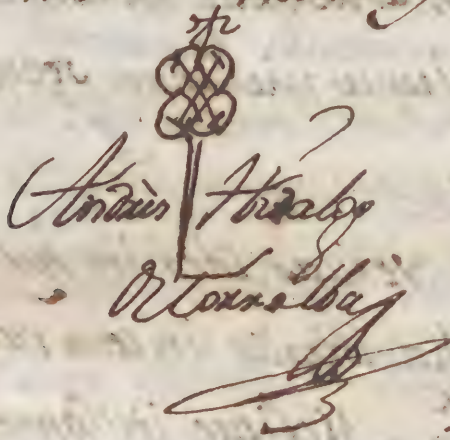 Andrès Hidalgo
de Torralba